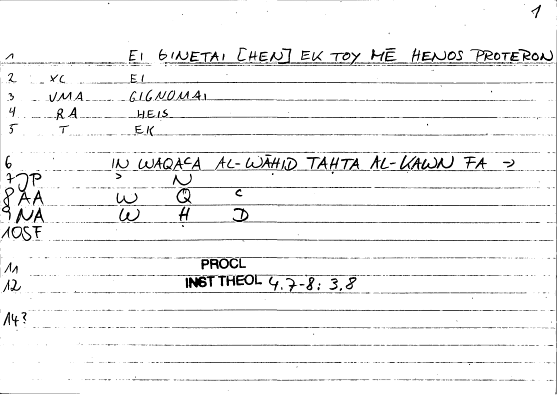 1
1 EI GINETAI [HEN] EK TOY MĒ HENOS PROTERON
2 XC EI
3 VMA GIGNOMAI
4 RA HEIS
5 T EK
6 IN WAQAʿA AL-WĀḤID TAḤTA AL-KAWN FA →
7 JP ʾ N
8 AA W Q ʿ
9 NA W Ḥ D
10 SF
11 PROCL
12 INST THEOL 4.7-8: 3,8
14?